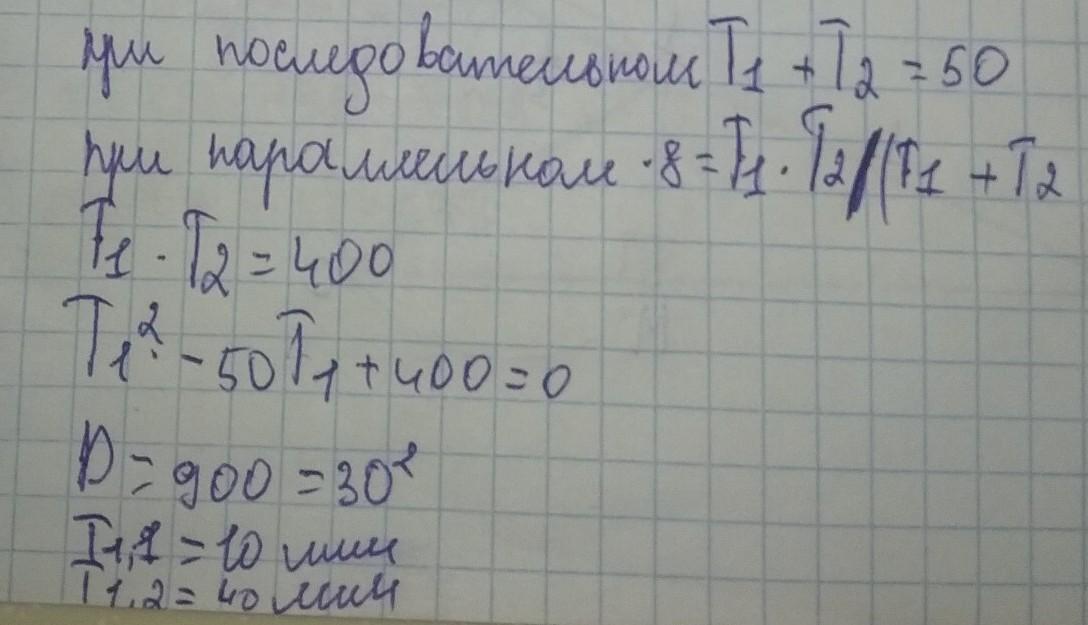 при последовательном T1 + T2 = 50
при параллельном · 8 = T1 · T2 /(T1 + T2
T1 · T2 = 400
T1² - 50T1 + 400 = 0
D = 900 = 30²
T1,1 = 10 мин
T1,2 = 40 мин